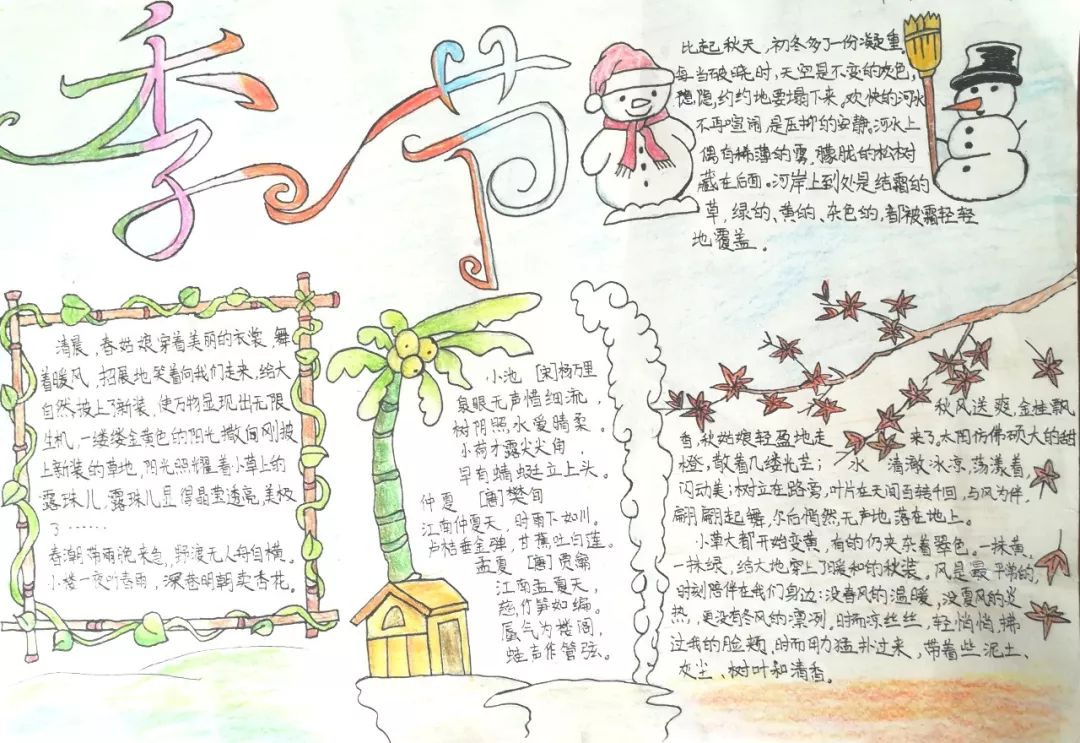 季节
比起秋天,初冬多了一份凝重。
每当破晓时,天空是不变的灰色,
隐隐约约地要塌下来。欢快的河水
不再喧闹,是压抑的安静。河水上
偶有稀薄的雾,朦胧的松树
藏在后面。河岸上到处是结霜的
草,绿的、黄的、杂色的,都被霜轻轻
地覆盖。
清晨,春姑娘穿着美丽的衣裳,舞
着暖风,招展地笑着向我们走来,给大
自然披上了新装,使万物显现出无限
生机,一缕缕金黄色的阳光撒向刚披
上新装的草地,阳光照耀着小草上的
露珠儿,露珠儿显得晶莹透亮,美极
了……
春潮带雨晚来急,野渡无人舟自横。
小楼一夜听春雨,深巷明朝卖杏花。
小池 [宋]杨万里
泉眼无声惜细流,
树阴照水爱晴柔。
小荷才露尖尖角,
早有蜻蜓立上头。
仲夏 [唐]樊旬
江南仲夏天,时雨下如川。
卢桔垂金弹,甘蕉吐白莲。
孟夏 [唐]贾弇
江南孟夏天,
慈竹笋如编。
蜃气为楼阁,
蛙声作管弦。
秋风送爽,金桂飘
香,秋姑娘轻盈地走来了,太阳仿佛硕大的甜
橙,散着几缕光芒;水清澈冰凉,荡漾着
闪动美;树立在路旁,叶片在天间百转千回,与风为伴,
翩翩起舞,尔后悄然无声地落在地上。
小草大都开始变黄,有的仍夹杂着翠色。一抹黄,
一抹绿,给大地穿上了暖和的秋装。风是最平常的,
时刻陪伴在我们身边:没春风的温暖,没夏风的炎
热,更没有冬风的凛冽,时而凉丝丝,轻悄悄,拂
过我的脸颊,时而用力猛扑过来,带着些泥土、
灰尘、树叶和清香。